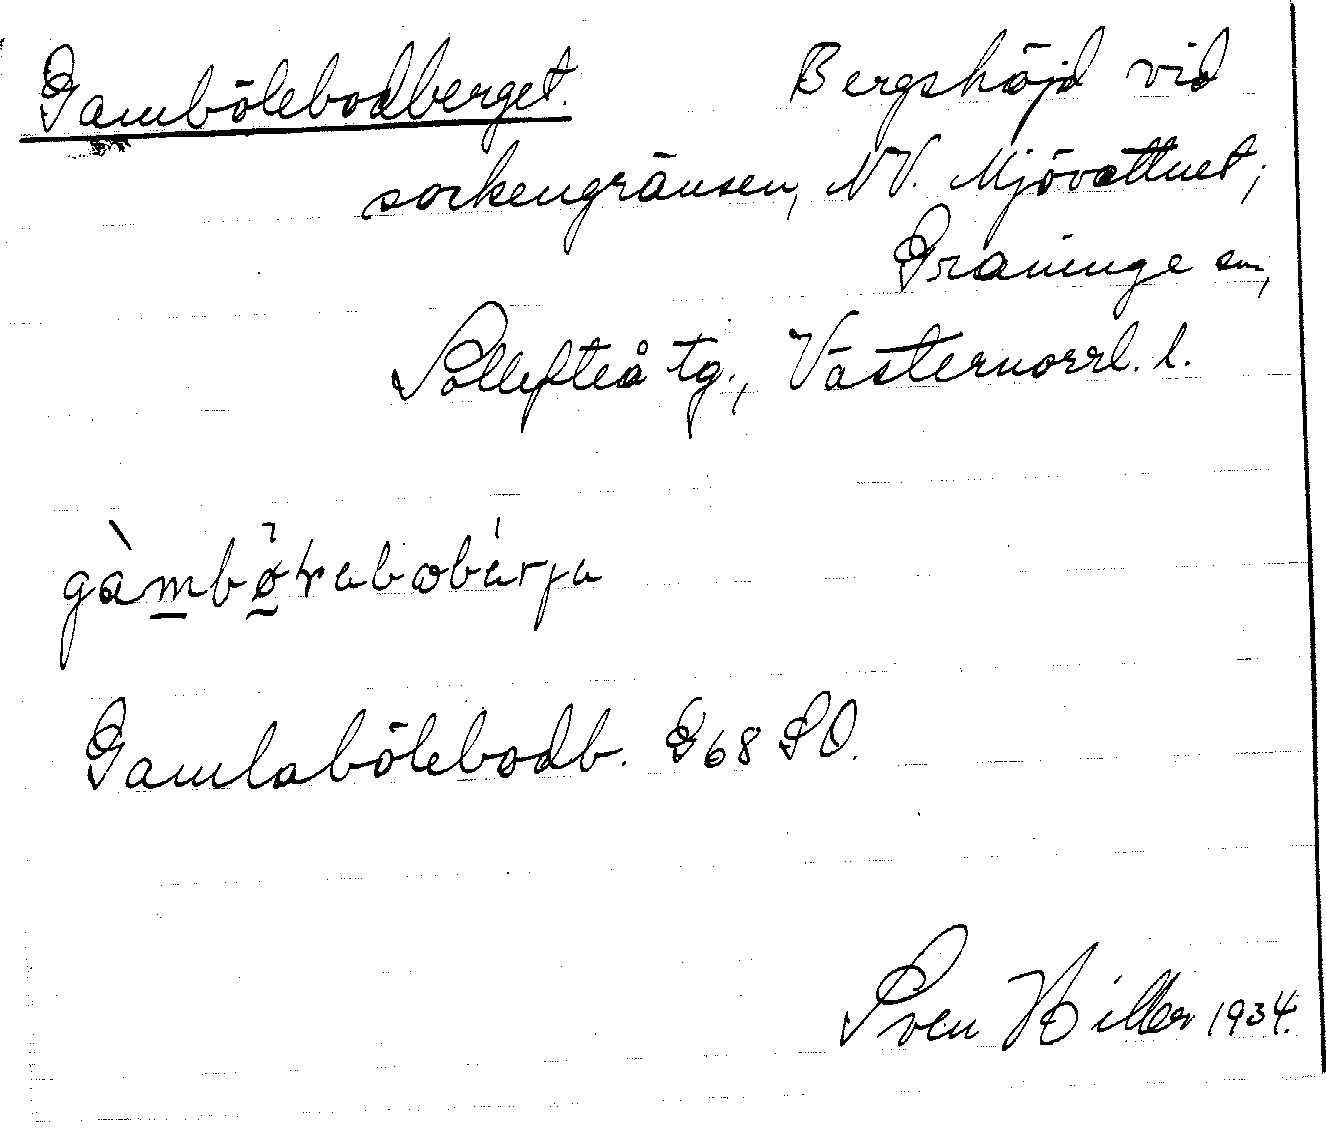 Gambölebodberget. Bergshöjd vid
sockengränsen, NV. Mjövattnet;
Graninge sn,
Sollefteå tg., Västernorrl. l.
gàmbø̀ɽabobárja
Gamlabölebodb. G68 SO.
Sven Hiller 1934.